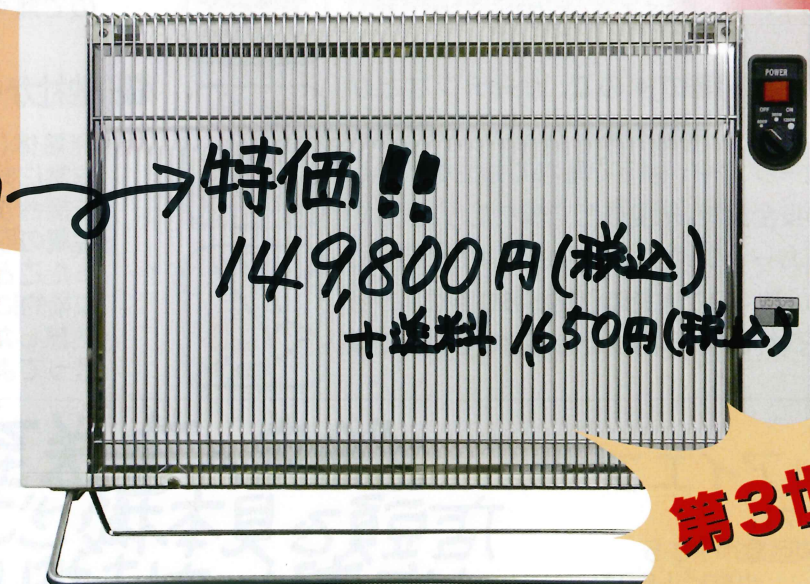 POWER
OFF ON
特価!!
149,800円(税込)
+送料 1,650円(税込)
第3世